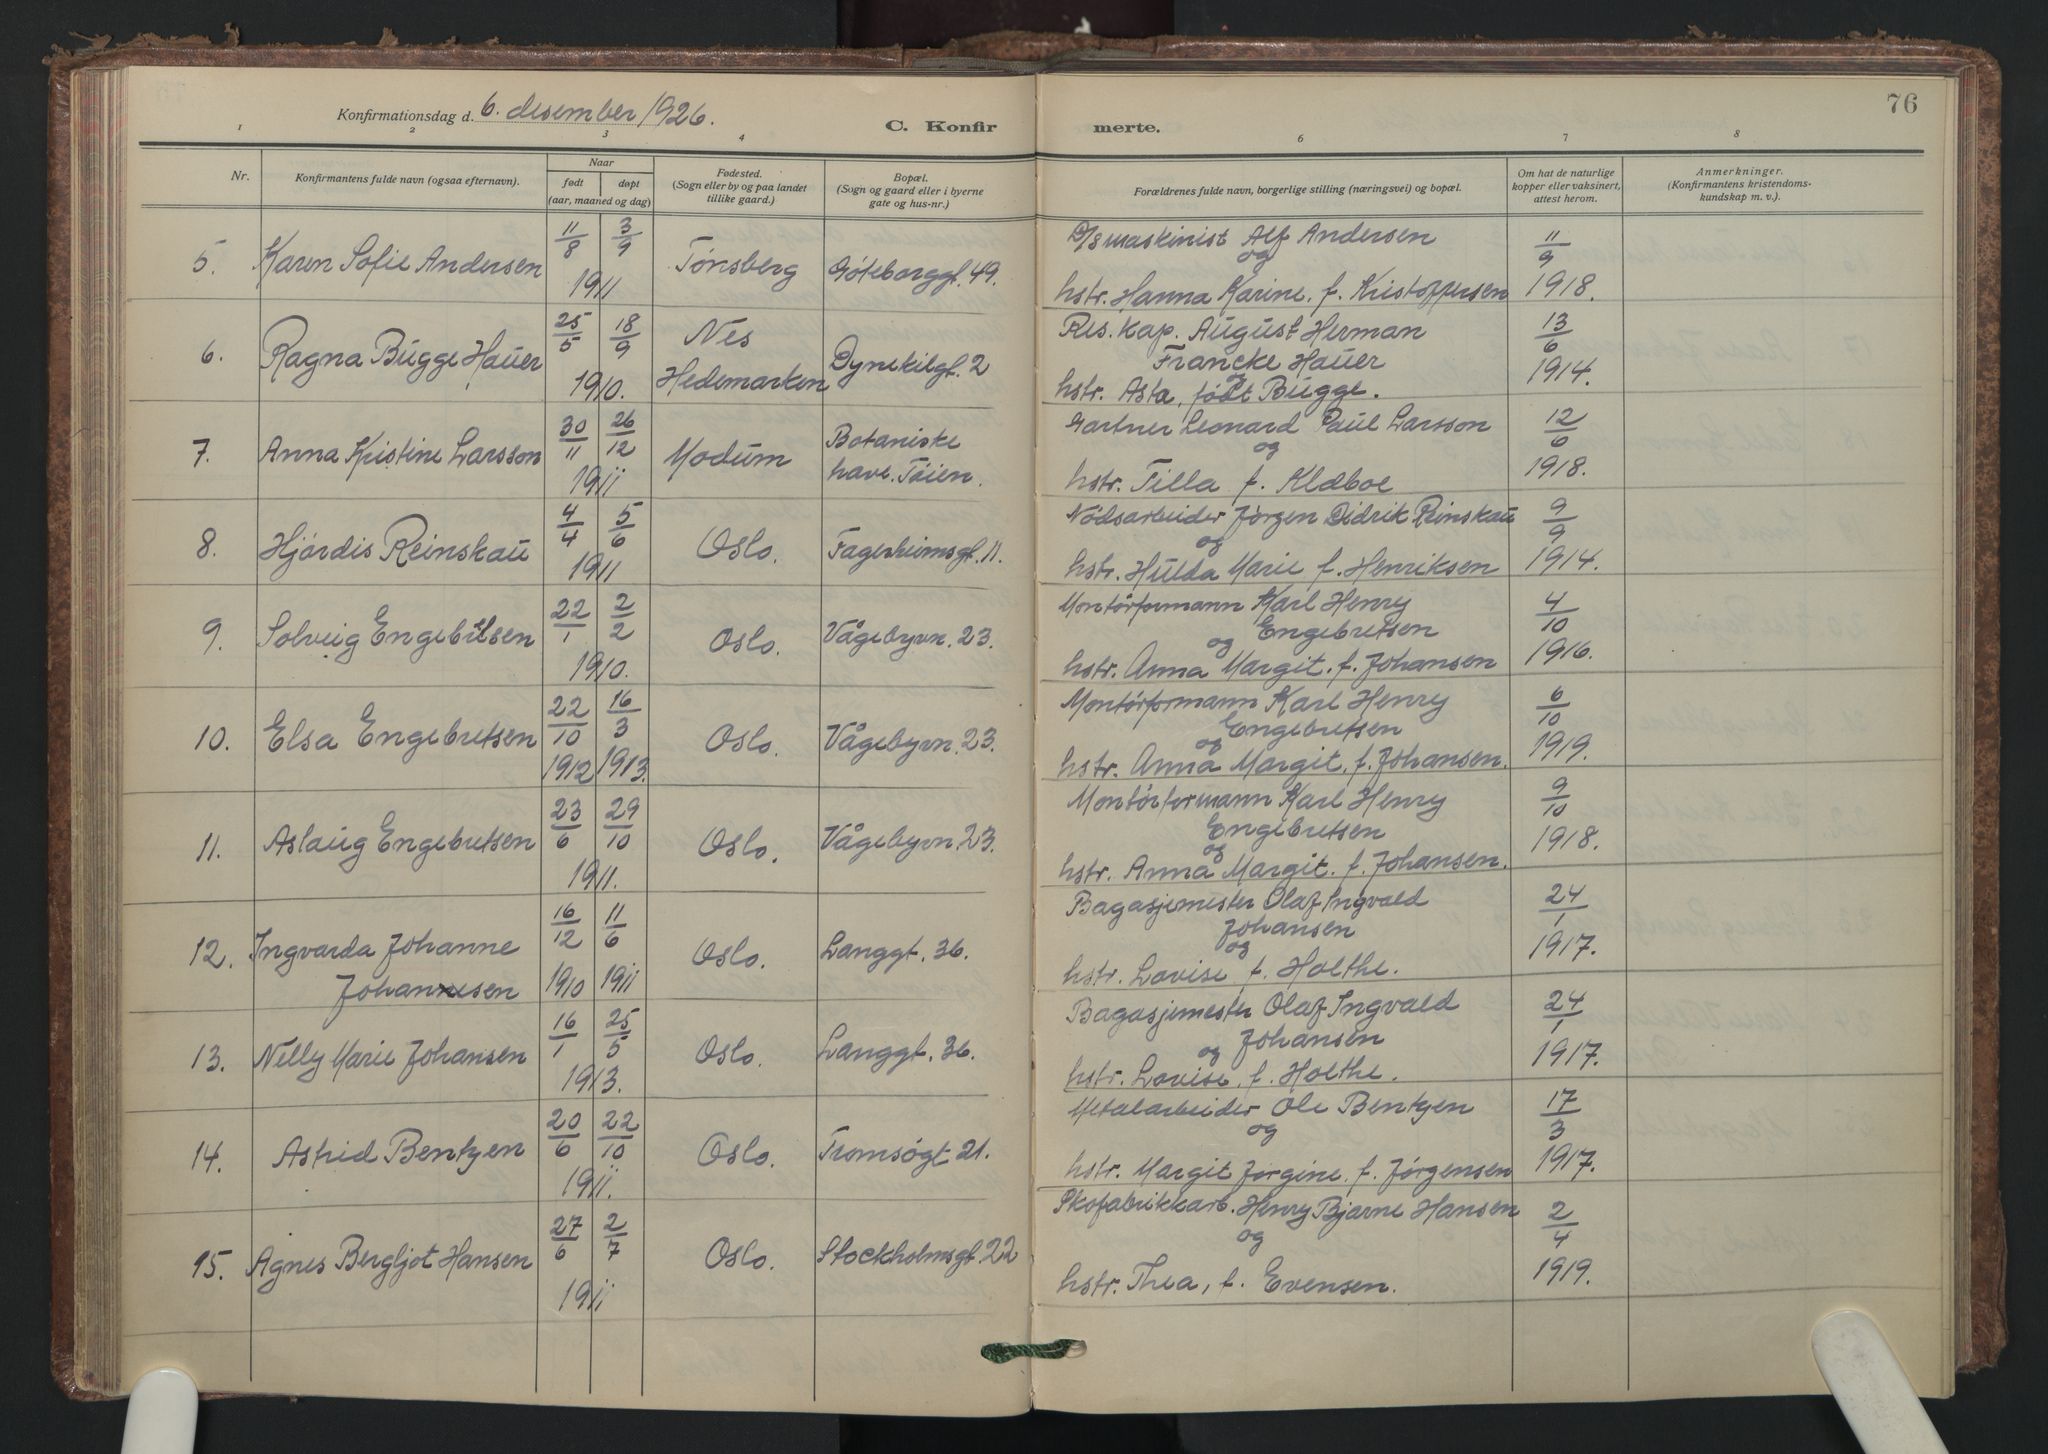 76
Konfirmationsdag d. 6. desember 1926.
C. Konfir merte.
1 2 3 4 6 7 8
Nr.
Konfirmantens fulde navn (ogsaa efternavn).
Naar
født døpt
(aar, maaned og dag)
Fødested.
(Sogn eller by og paa landet
tillike gaard.)
Bopæl.
(Sogn og gaard eller i byerne
gate og hus-nr.)
Forældrenes fulde navn, borgerlige stilling (næringsvei) og bopæl.
Om hat de naturlige
kopper eller vaksinert,
attest herom.
Anmerkninger.
(Konfirmantens kristendoms-
kundskap m. v.).
5. Karen Sofie Andersen 11/8 3/9 1911 Tønsberg Göteborggt. 49.
D/s maskinist Alf Andersen
og
hstr. Hanna Karine, f. Kristoffersen
11/9 1918.
6. Ragna Bugge Hauer 25/5 18/9 1910. Nes
Hedemarken Dynekilgt. 2
Res. kap. August Herman
Francke Hauer
og
hstr. Asta, født Bugge.
13/6 1914.
7. Anna Kristine Larsson 30/11 26/12 1911 Modum Botaniske
have. Töien.
Gartner Leonard Paul Larsson
og
hstr. Tilla f. Klæboe
12/6 1918.
8. Hjördis Reinskau 4/4 5/6 1911 Oslo. Fagerheimsgt. 11.
Nödsarbeider Jörgen Didrik Reinskau
og
hstr. Hulda Marie f. Henriksen
9/9 1914.
9. Solveig Engebretsen 22/1 2/2 1910. Oslo. Vågebyvn. 23.
Montörformann Karl Henry
Engebretsen
og
hstr. Anna Margit. f. Johansen
4/10 1916.
10. Elsa Engebretsen 22/10 1912 16/3 1913. Oslo. Vågebyvn. 23.
Montörformann Karl Henry
Engebretsen
og
hstr. Anna Margit, f. Johansen.
6/10 1919.
11. Aslaug Engebretsen 23/6 29/10 1911. Oslo. Vågebyvn. 23.
Montörformann Karl Henry
Engebretsen
og
hstr. Anna Margit. f. Johansen.
9/10 1918.
12. Ingvarda Johanne
Johansen 16/12 1910 11/6 1911 Oslo. Langgt. 36.
Bagasjemester Olaf Ingvald
Johansen
og
hstr. Lovise, f. Holthe.
24/1 1917.
13. Nelly Marie Johansen 16/1 25/5 1913. Oslo. Langgt. 36.
Bagasjemester Olaf Ingvald
Johansen
og
hstr. Lovise, f. Holthe.
24/1 1917.
14. Astrid Bentzen 20/6 22/10 1911. Oslo. Tromsögt. 21.
Metalarbeider Ole Bentzen
og
hstr. Margit Jorgine, f. Jørgensen
17/3 1917.
15. Agnes Bergljot Hansen 27/6 2/7 1911 Oslo. Stockholmsgt. 22
Skofabrikkarb. Henry Bjarne Hansen
og
hstr. Thea, f. Evensen.
2/4 1919.